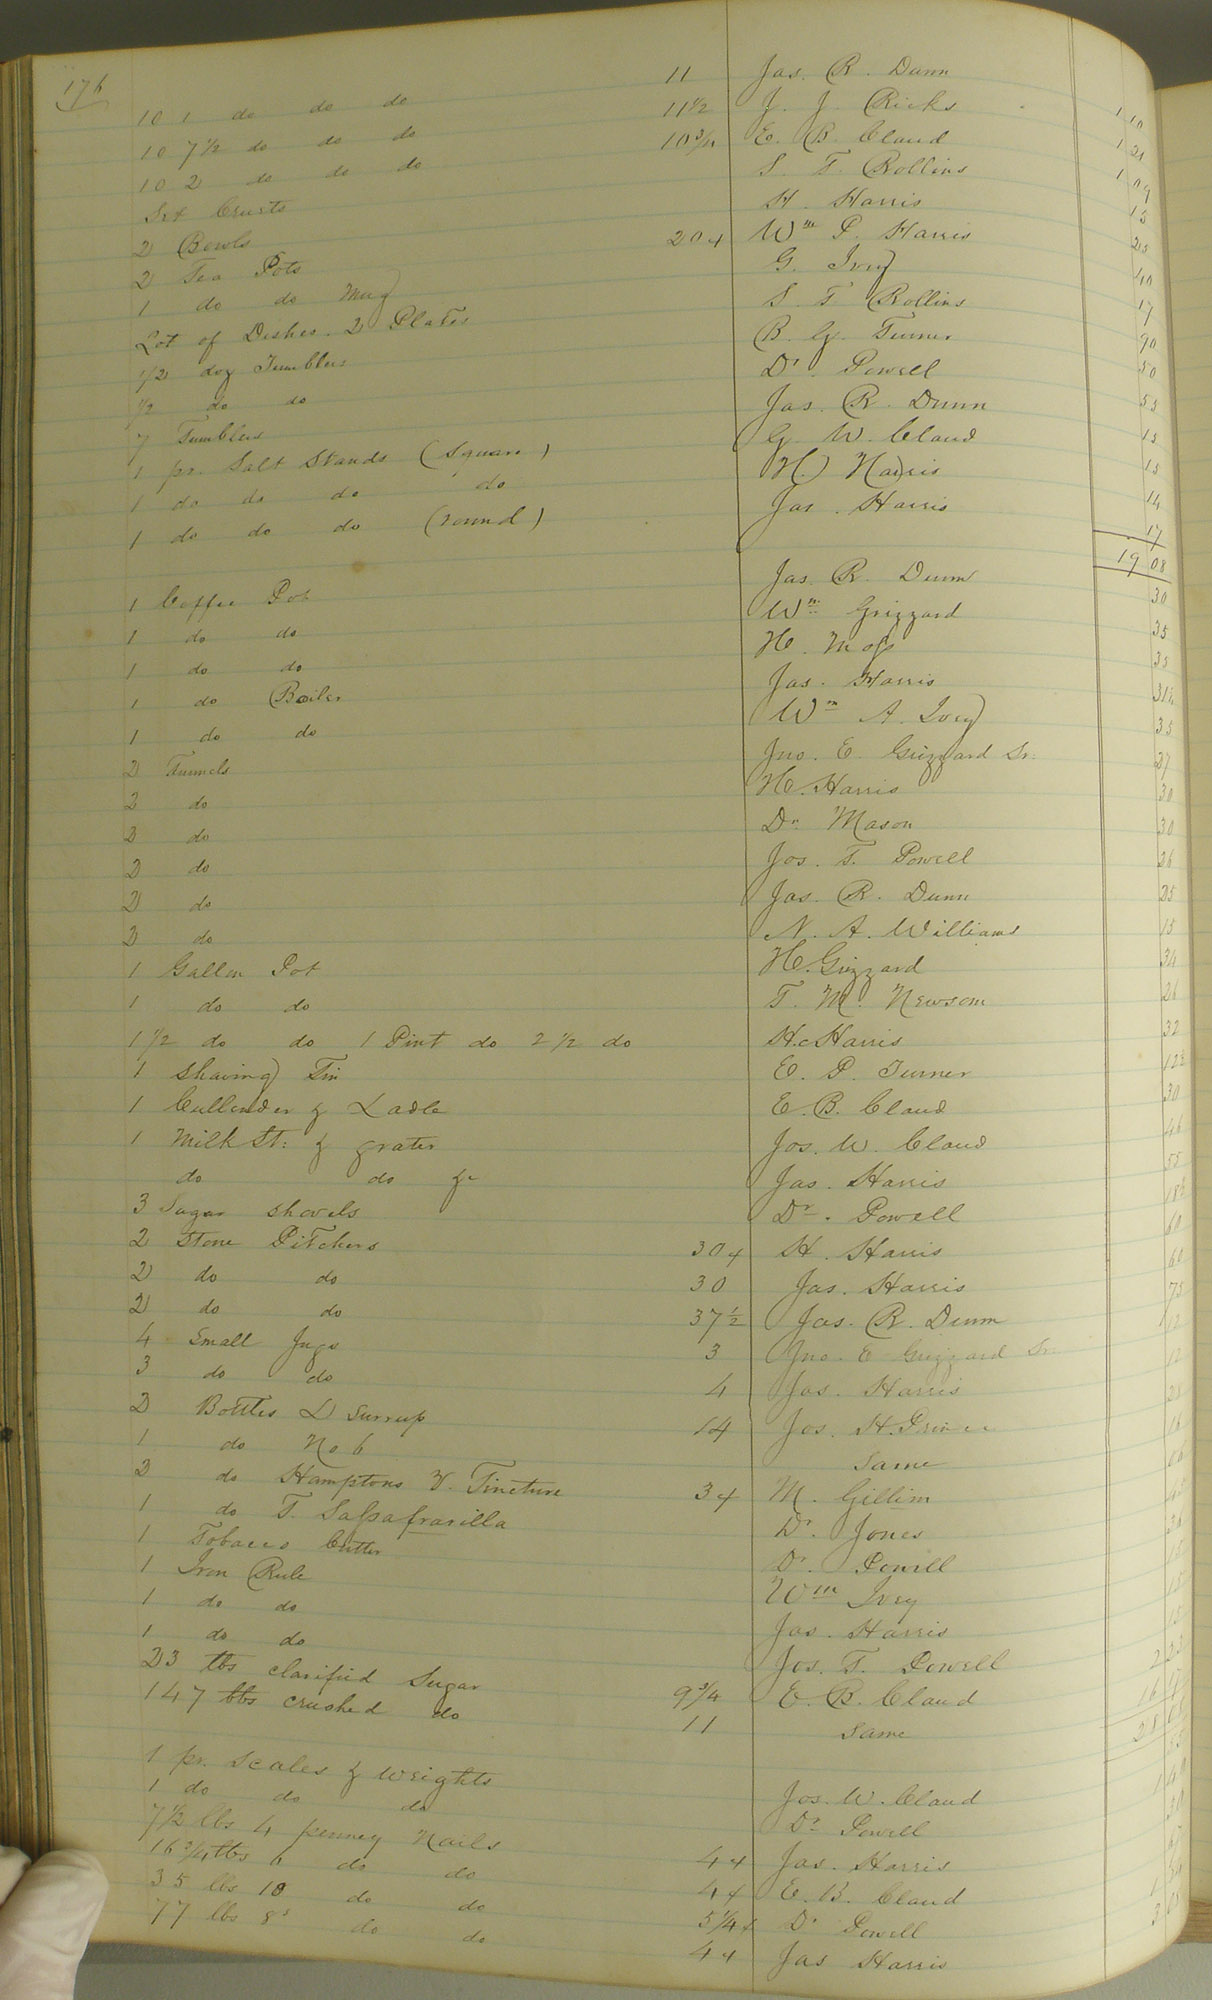 176
10 1 do do do 11 Jas. R. Dunn 1 10
10 7½ do do do 11½ J. J. Ricks 1 21
10 2 do do do 10¾ E. B. Claud 1 09
Set Cruets S. T. Rollins 15
2 Bowls H. Harris 25
2 Tea Pots 20 Wm P. Harris 40
1 do do Mug G. Ivey 17
Lot of Dishes. 2 Plates S. T. Rollins 90
1/2 doz Tumblers B. G. Turner 50
½ do do Dr. Powell 55
7 Tumblers Jas. R. Dunn 15
1 pr. Salt Stands (Square) G. W. Claud 15
1 do do do do H. Harris 14
1 do do do (round) Jas. Harris 17
19 08
1 Coffee Pot Jas. R. Dunn 30
1 do do Wm Grizzard 35
1 do do H. Moss 35
1 do Boiler Jas. Harris 31½
1 do do Wm A. Ivey 35
2 Funnels Jno. E. Grizzard Sr. 27
2 do H. Harris 30
2 do Dr Mason 30
2 do Jos. T. Powell 26
2 do Jas. R. Dunn 25
2 do N. A. Williams 15
1 Gallon Pot H. Grizzard 34
1 do do T. M. Newsom 26
1 ½ do do 1 Pint do 2 ½ do H. Harris 32
1 shaving Tin E. P. Turner 12½
1 Cullender & Ladle E. B. Claud 30
1 Milk St: & grater Jos. W. Claud 46
do do &c Jas. Harris 55
3 Sugar shovels Dr. Powell 18½
2 Stone Pitchers 30 H. Harris 60
2 do do 30 Jas. Harris 60
2 do do 37½ Jas. R. Dunn 75
4 Small Jugs 3 Jno. E Grizzard Sr. 12
3 do do 4 Jas. Harris 12
2 Bottles L Surrup 14 Jos. H. Prince 28
1 do No 6 Same 16
2 do Hamptons V. Tincture 3 M. Gillim 06
1 do T. Salsafrarilla Dr. Jones
1 Tobacco Cutter Dr. Powell
1 Iron Rule Wm Ivey
1 do do Jas. Harris
1 do do Jos. T. Powell
23 lbs clarified Sugar 9¾ E. B. Claud 2
147 lbs crushed do 11 Same 16
38
1 pr. scales & weights Jos. W. Claud
1 do do do Dr Powell
7½ lbs 4 penney Nails 4 Jas. Harris
16¾ lbs 6 do do 4 E. B. Claud
35 lbs 10 do do 5¼ Dr Powell 1
77 lbs 8s do do 4 Jas Harris 3